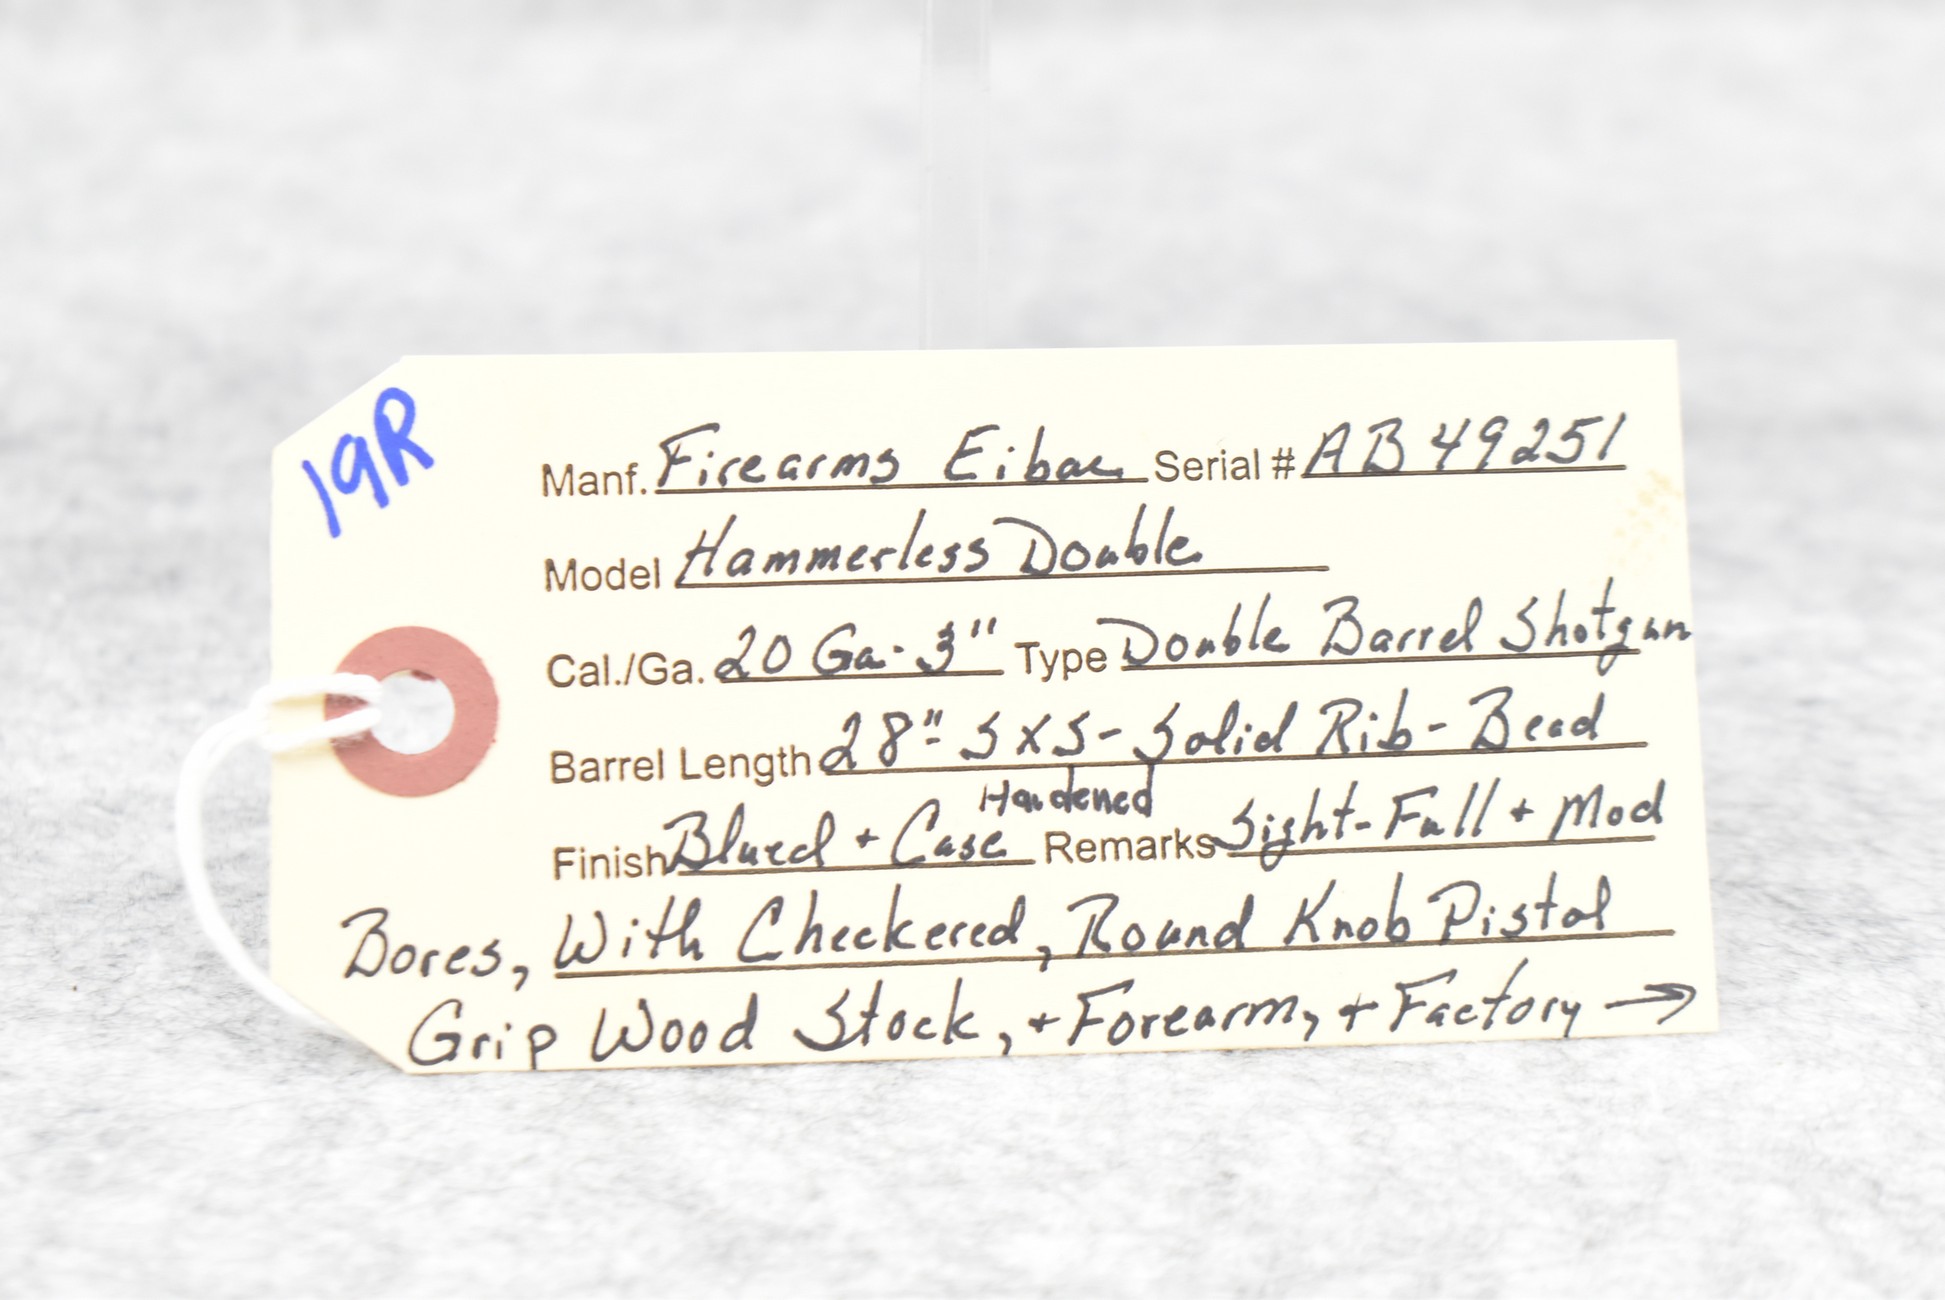 19R
Manf. Firearms Eibar Serial # AB49251
Model Hammerless Double
Cal./Ga. 20 Ga.-3" Type Double Barrel Shotgun
Barrel Length 28"-SXS-Solid Rib-Bead
Hardened
Finish Blued + Case Remarks Sight-Full + Mod
Bores, With Checkered, Round Knob Pistol
Grip Wood Stock, + Forearm, + Factory →